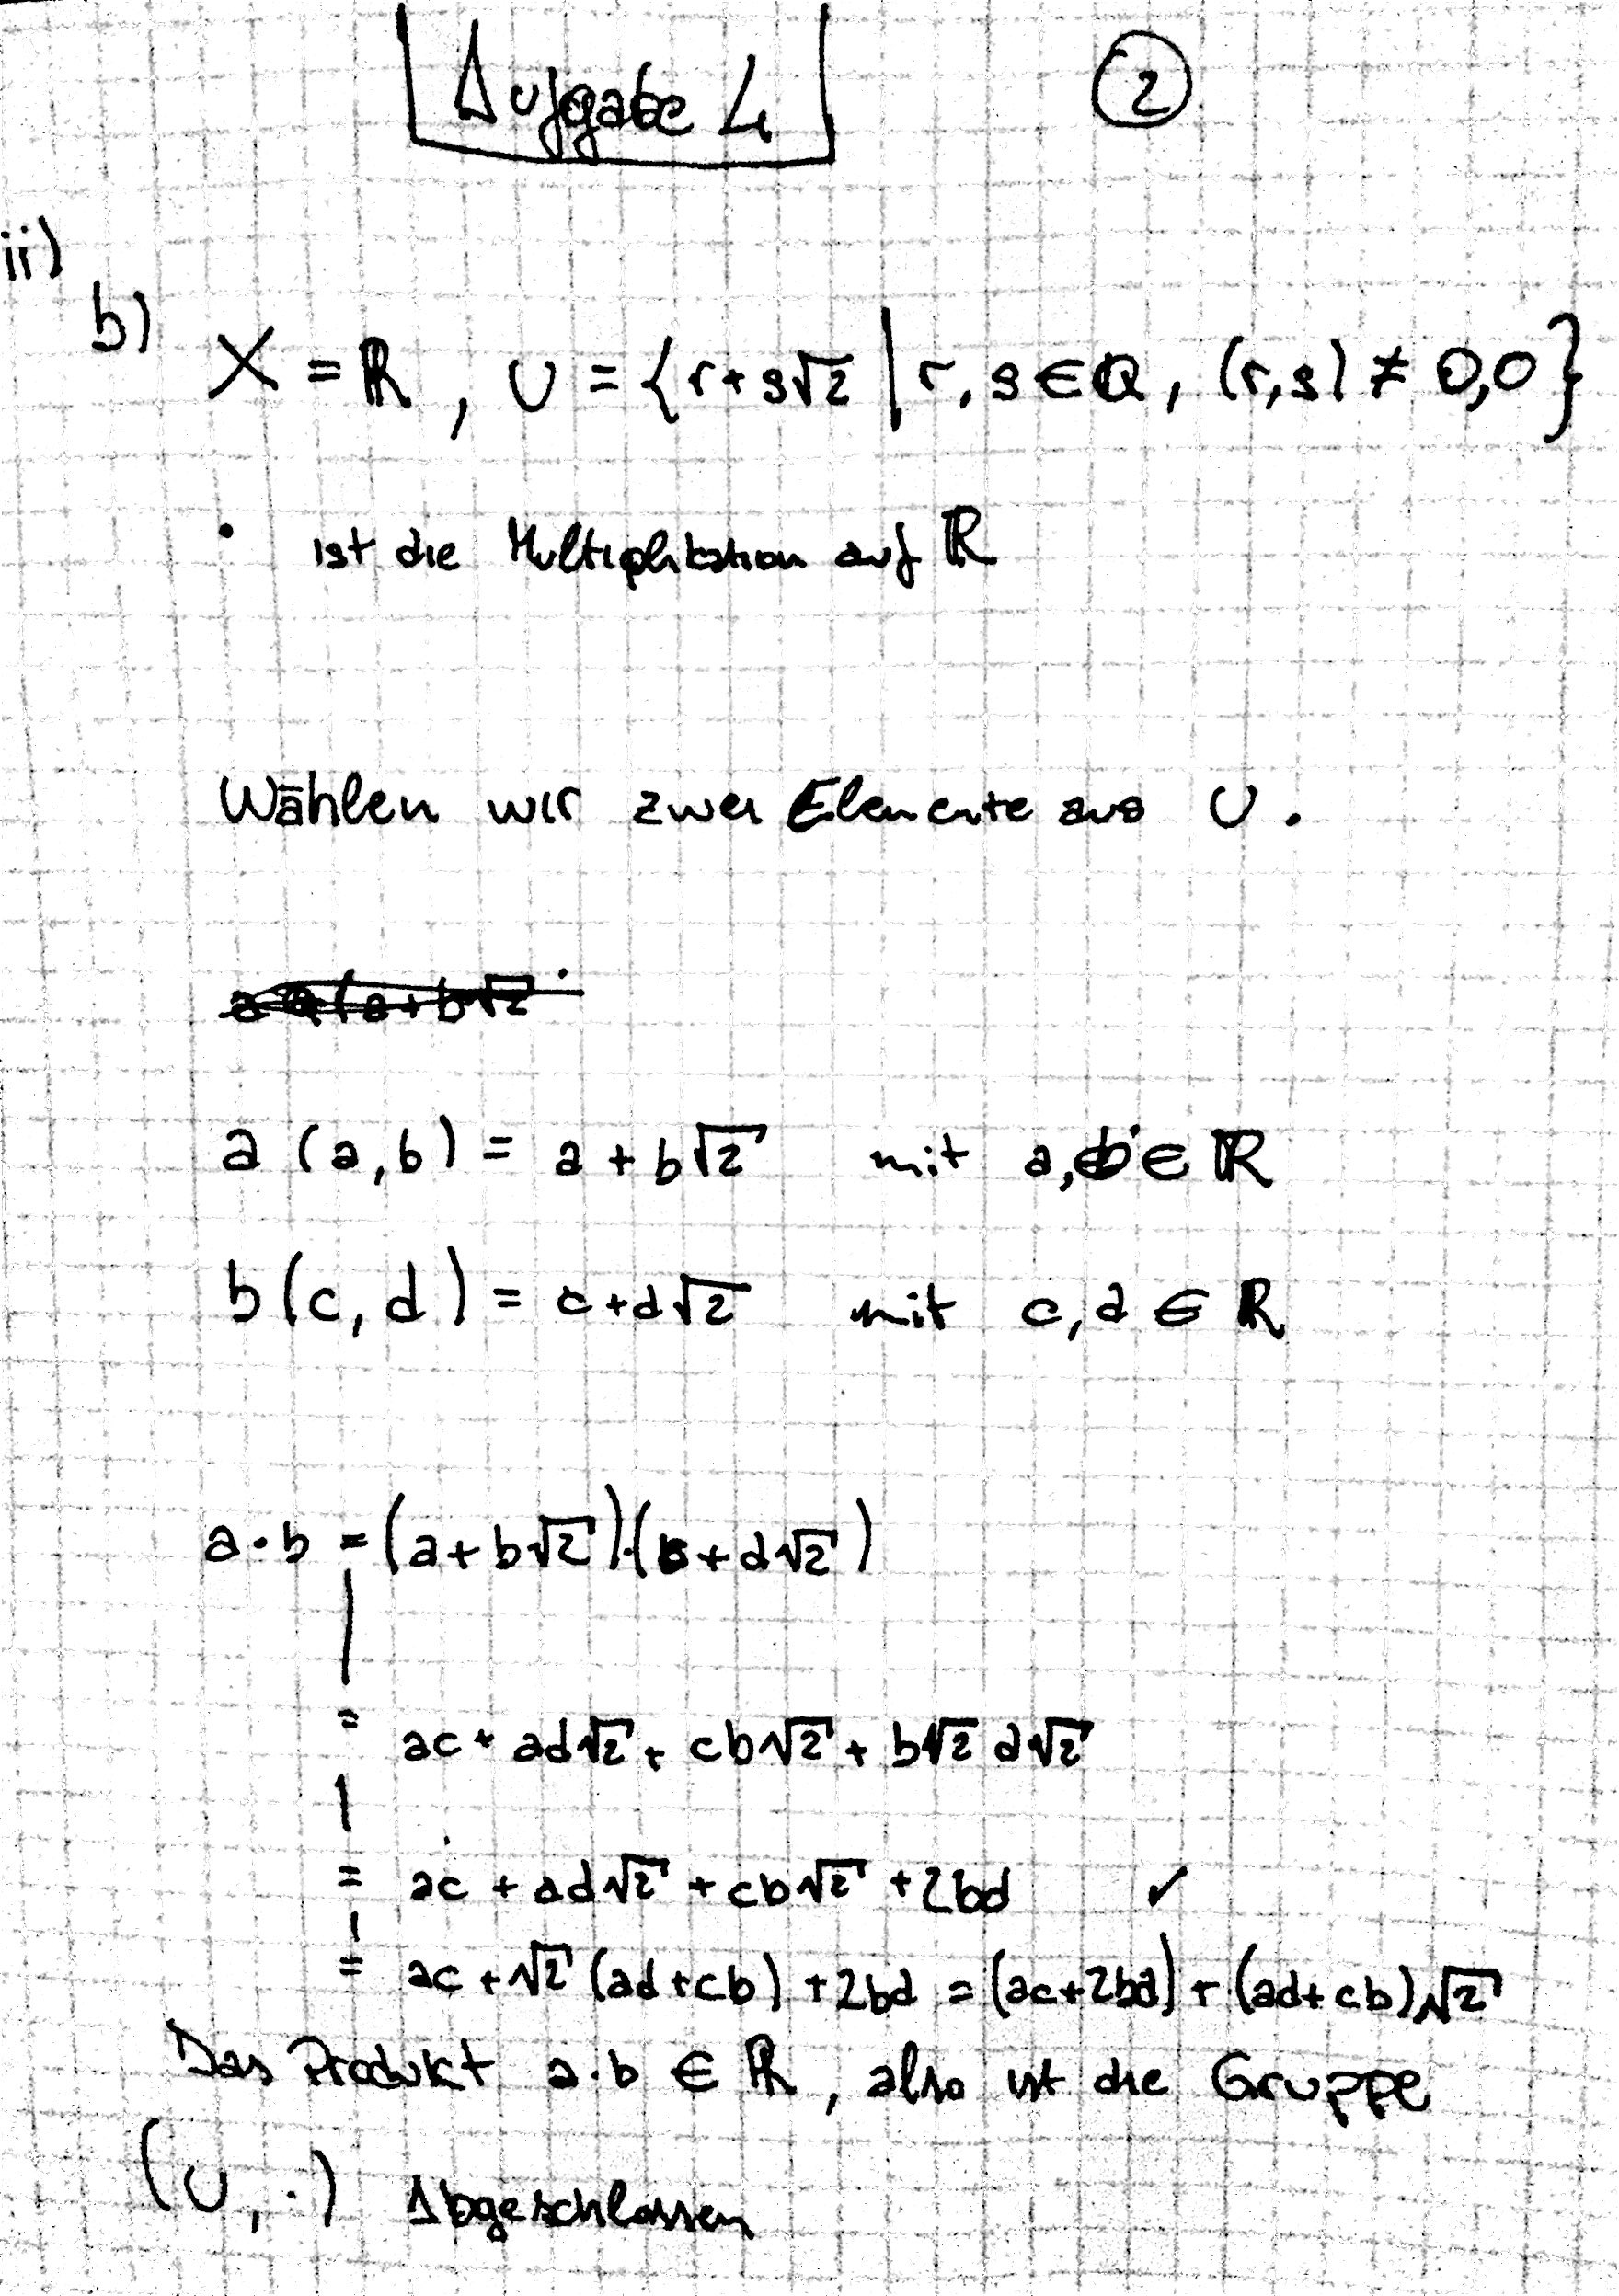 Aufgabe 4
2
ii)
b) X = ℝ, U = {r+s√2 | r,s ∈ ℚ, (r,s) ≠ 0,0}
· ist die Multiplikation auf ℝ
Wählen wir zwei Elemente aus U.
a (a,b) = a + b√2 mit a,b ∈ ℝ
b(c,d) = c+d√2 mit c,d ∈ ℝ
a·b = (a+b√2)·(c+d√2)
= ac + ad√2 + cb√2 + b√2 d√2
= ac + ad√2 + cb√2 + 2bd ✓
= ac + √2 (ad+cb) + 2bd = (ac+2bd) + (ad+cb)√2
Das Produkt a·b ∈ ℝ, also ist die Gruppe
(U, ·) Abgeschlossen